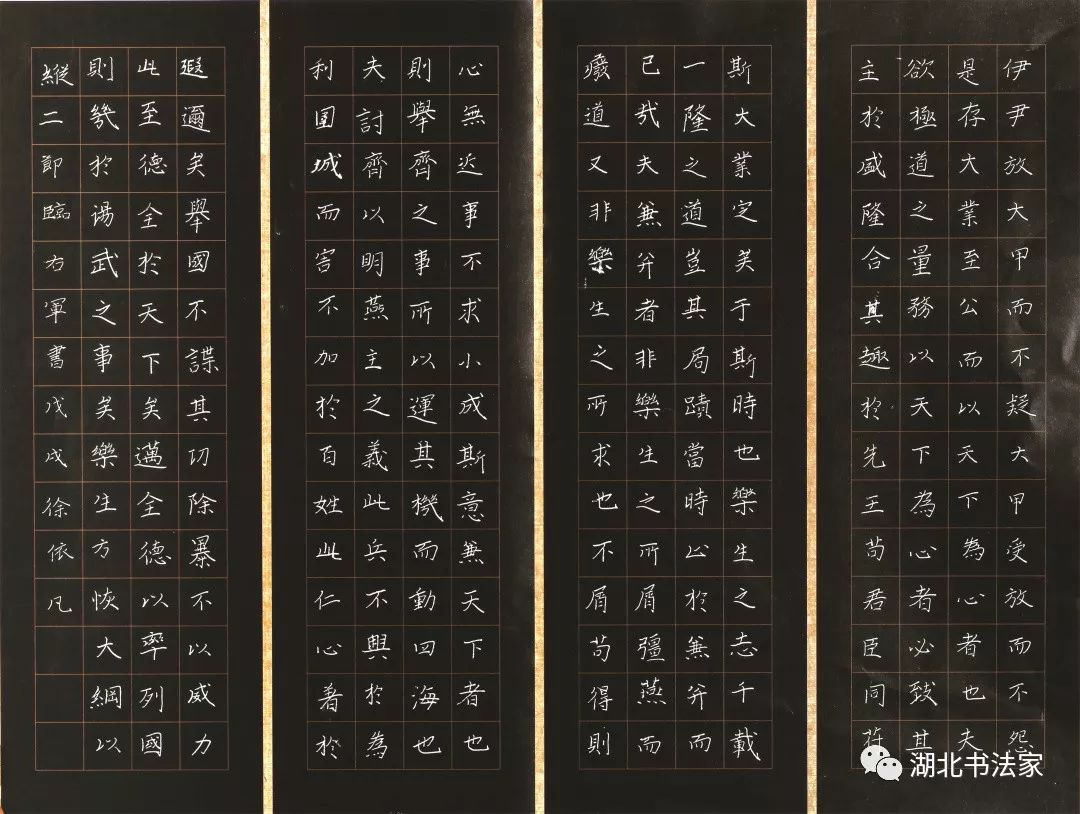 伊尹放大甲而不疑大甲受放而不怨
是存大業至公而以天下為心者也夫
欲極道之量務以天下為心者必致其
主於盛隆合其趣於先王苟君臣同符
斯大業定矣于斯時也樂生之志千載
一隆之道豈其局蹟當時止於兼并而
已哉夫兼并者非樂生之所屑彊燕而
癈道又非樂生之所求也不屑苟得則
心無近事不求小成斯意兼天下者也
則舉齊之事所以運其機而動四海也
夫討齊以明燕主之義此兵不興於為
利圍城而害不加於百姓此仁心著於
遐邇矣舉國不謀其功除暴不以威力
此至德全於天下矣邁全德以率列國
則幾於湯武之事矣樂生方恢大綱以
縱二即臨右軍書戊戌徐依凡
湖北书法家